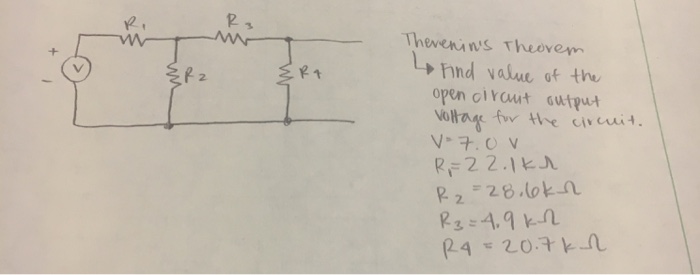 R1
R3
+
V
-
R2
R4
Thevenin's Theorem
↳ Find value of the
open circuit output
voltage for the circuit.
V=7.0 V
R1=22.1kΩ
R2=28.6kΩ
R3=4.9 kΩ
R4=20.7 kΩ